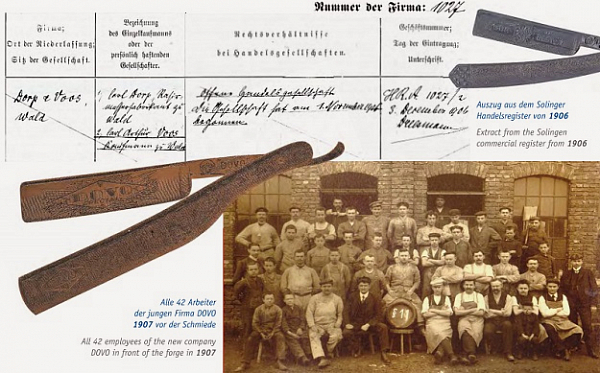 Nummer der Firma: 1027
Firma;
Ort der Niederlassung;
Sitz der Gesellschaft.
Bezeichnung
des Einzelkaufmanns
oder der
persönlich haftenden
Gesellschafter.
Rechtsverhältnisse
bei Handelsgesellschaften.
Geschäftsnummer;
Tag der Eintragung;
Unterschrift.
Dorp & Voos,
Wald
1, Carl Dorp Rasir-
messerfabrikant zu
Wald
2, Carl Arthur Voos
Kaufmann zu Wald
Offene Handelsgesellschaft
Die Gesellschaft hat am 1 November 1906
begonnen
H.R.A 1027/2
3. Dezember 1906
Auszug aus dem Solinger
Handelsregister von 1906
Extract from the Solingen
commercial register from 1906
DOVO
DOVO
Alle 42 Arbeiter
der jungen Firma DOVO
1907 vor der Schmiede
All 42 employees of the new company
DOVO in front of the forge in 1907